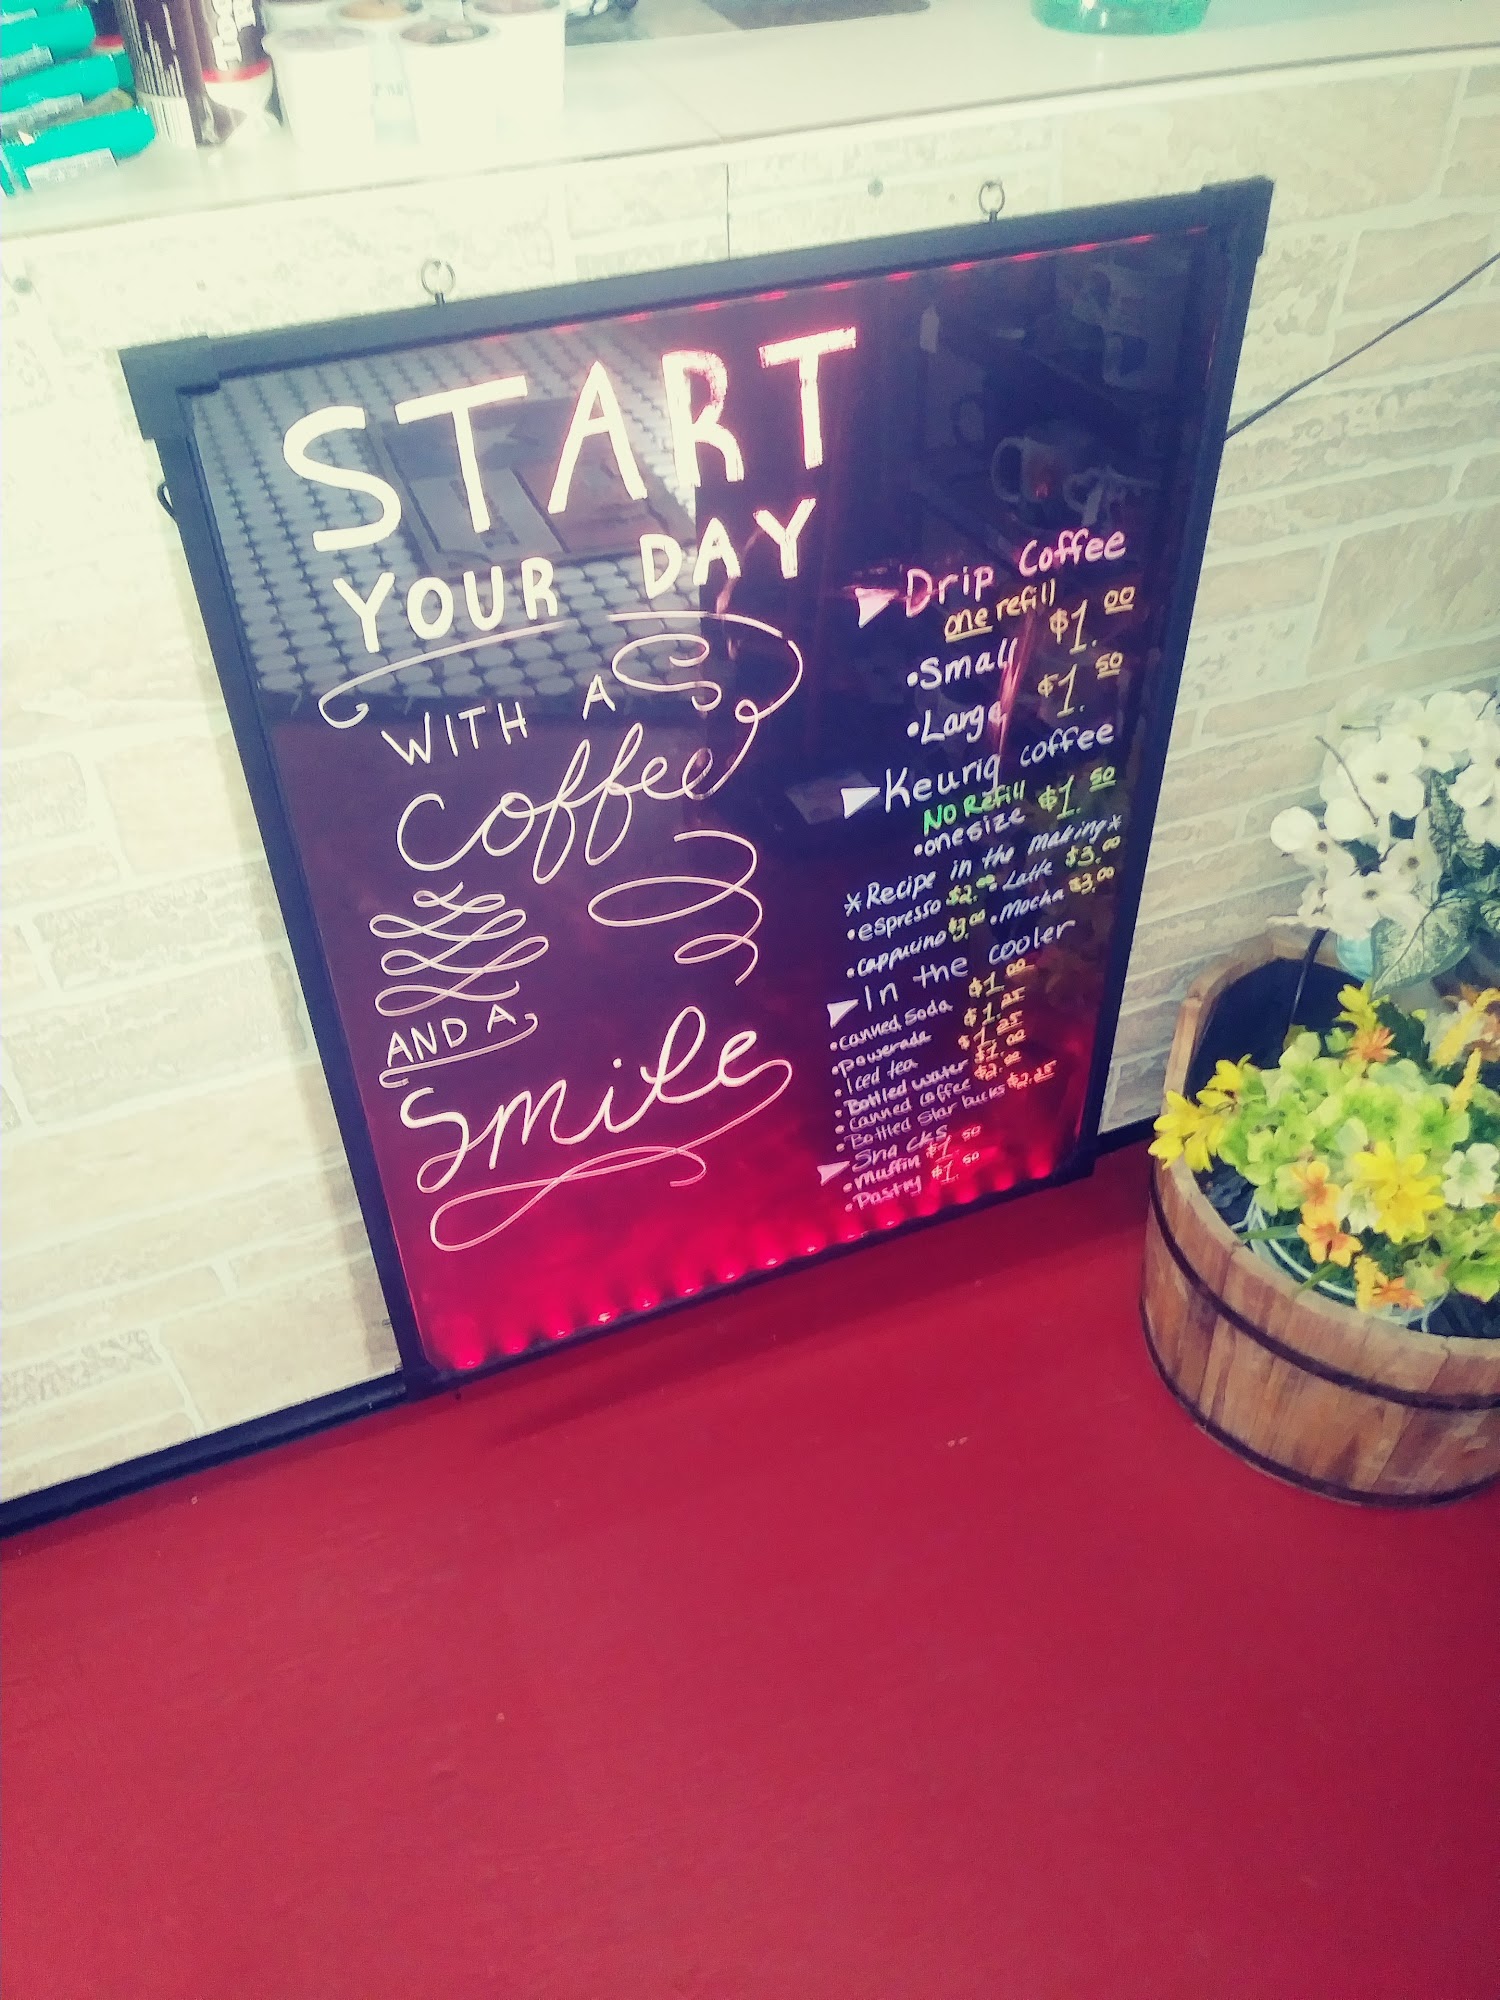 START
YOUR DAY
WITH A
Coffee
AND A
Smile
Drip Coffee
one refill
•Small $1.00
•Large $1.50
Keurig coffee
NO Refill
•onesize $1.50
*Recipe in the making*
•espresso $2.00 •Latte $3.00
•cappucino $3.00 •Mocha $3.00
In the cooler
•canned soda $1.00
•Powerade $1.25
•Iced tea $1.25
•Bottled water $1.00
•canned coffee $2.00
•Bottled Starbucks $2.25
Snacks
•Muffin $1.50
•Pastry $1.50